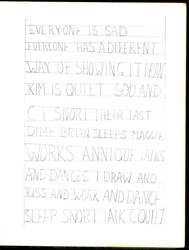 EVERYONE IS SAD
EVERYONE HAS A DIFFERENT
WAY OF SHOWING IT
KIM IS QUIET
SNORT THEIR LAST
DIME BRIAN SLEEPS MAGGIE
WORKS ANNIQUE TALKS
AND DANCES I DRAW AND
KISS AND WORK AND DANCE
SLEEP SNORT TALK QUIET